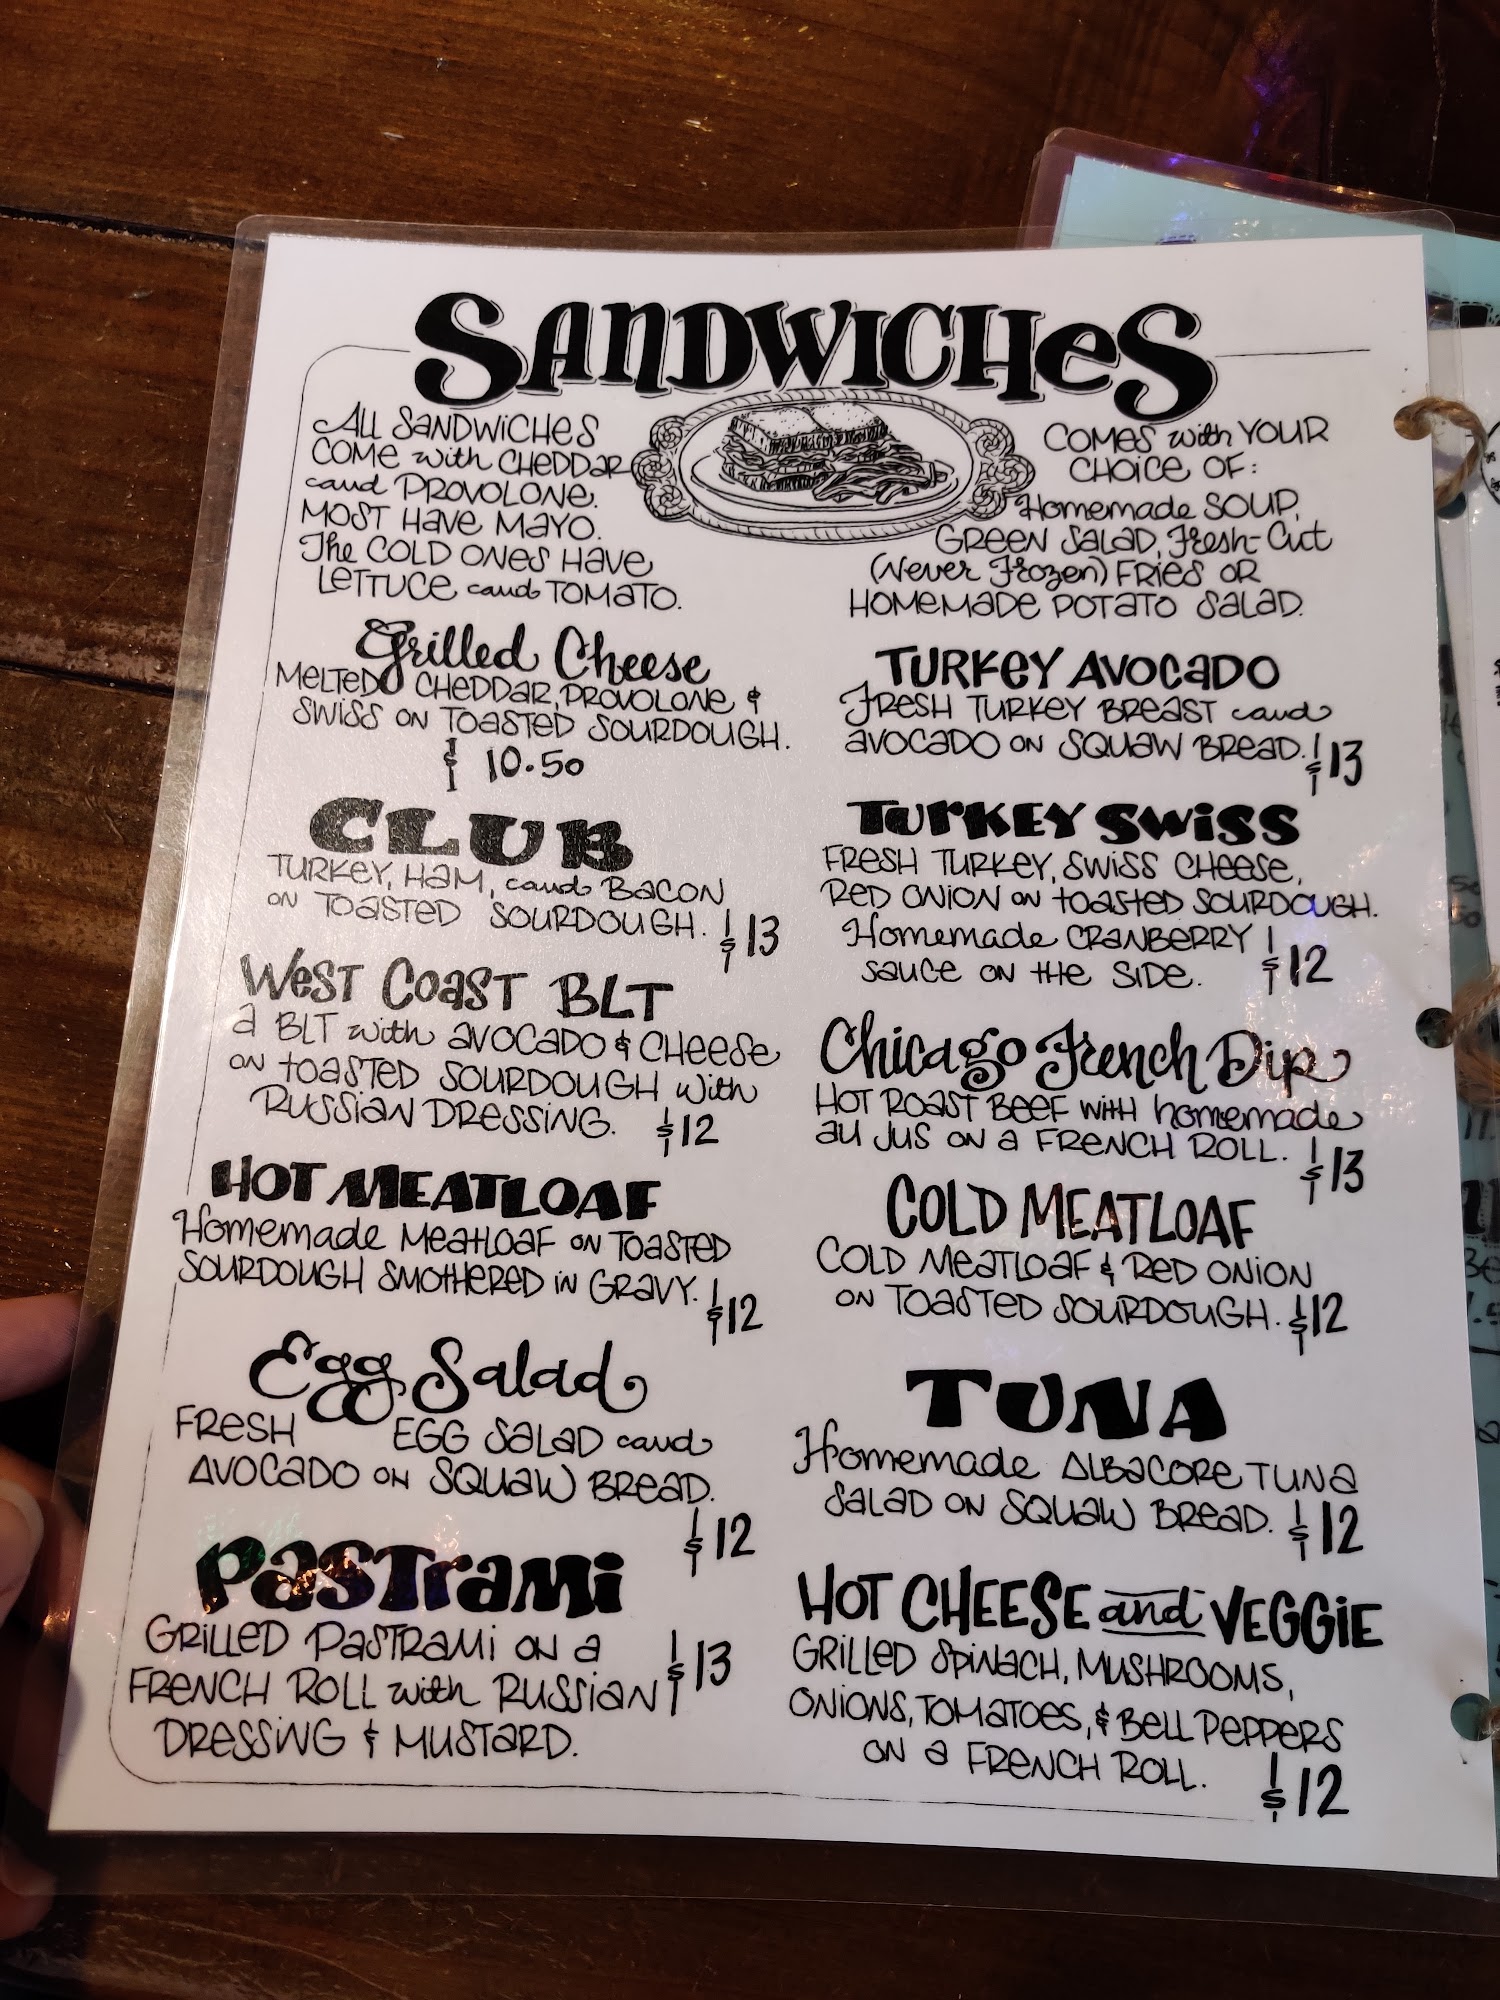 SANDWICHES
ALL SANDWICHES
COME with CHEDDAR
and PROVOLONE.
MOST HAVE MAYO.
The COLD ONES HAVE
LETTUCE and TOMATO.
COMES with YOUR
CHOICE OF:
Homemade SOUP,
GREEN SALAD, Fresh-Cut
(Never Frozen) FRIES OR
HOMEMADE POTATO SALAD.
Grilled Cheese
MELTED CHEDDAR, PROVOLONE &
SWISS ON TOASTED SOURDOUGH.
$ 10.50
CLUB
TURKEY, HAM, and BACON
ON TOASTED SOURDOUGH. $13
WEST COAST BLT
a BLT with AVOCADO & CHEESE
ON TOASTED SOURDOUGH with
RUSSIAN DRESSING. $12
HOT MEATLOAF
Homemade MEATLOAF ON TOASTED
SOURDOUGH SMOTHERED IN GRAVY. $12
Egg Salad
FRESH EGG SALAD and
AVOCADO ON SQUAW BREAD.
$12
PASTRAMI
GRILLED PASTRAMI ON A
FRENCH ROLL with RUSSIAN $13
DRESSING & MUSTARD.
TURKEY AVOCADO
FRESH TURKEY BREAST and
AVOCADO ON SQUAW BREAD. $13
TURKEY SWISS
FRESH TURKEY, SWISS CHEESE,
RED ONION ON TOASTED SOURDOUGH.
Homemade CRANBERRY
SAUCE ON THE SIDE. $12
Chicago French Dip
HOT ROAST BEEF WITH homemade
AU JUS ON A FRENCH ROLL. $13
COLD MEATLOAF
COLD MEATLOAF & RED ONION
ON TOASTED SOURDOUGH. $12
TUNA
Homemade ALBACORE TUNA
SALAD ON SQUAW BREAD. $12
HOT CHEESE and VEGGIE
GRILLED SPINACH, MUSHROOMS,
ONIONS, TOMATOES, & BELL PEPPERS
ON A FRENCH ROLL. $12